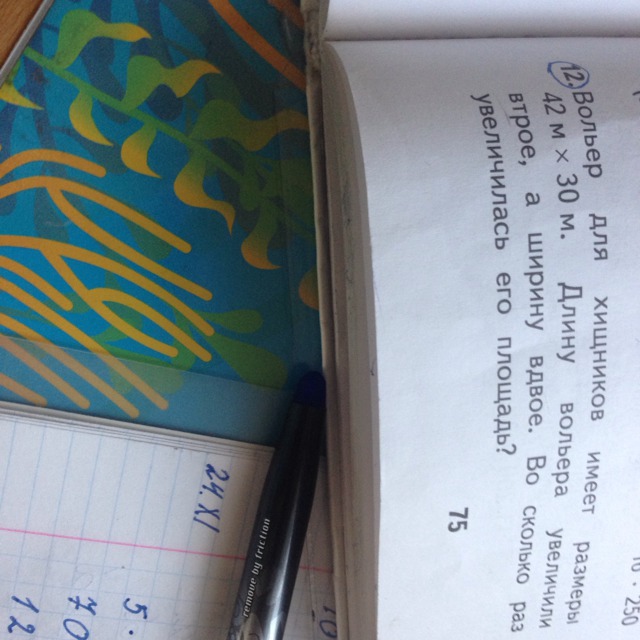 250
12 Вольер для хищников имеет размеры
42 м × 30 м. Длину вольера увеличили
втрое, а ширину вдвое. Во сколько раз
увеличилась его площадь?
75
24.XI
remove by friction
5.
70
12